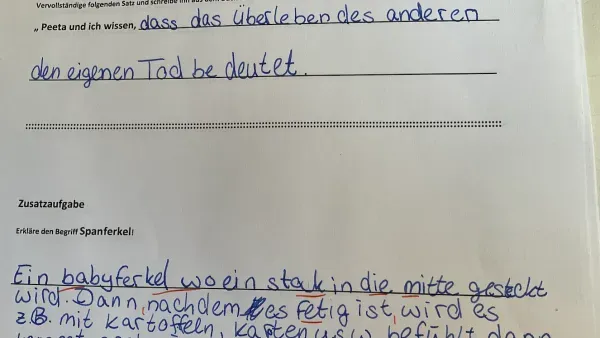 Vervollständige folgenden Satz und schreibe ihn aus dem
„ Peeta und ich wissen, dass das überleben des anderen
den eigenen Tod be deutet.
Zusatzaufgabe
Erkläre den Begriff Spanferkel!
Ein babyferkel wo ein stak in die mitte gesteckt
wird. Dann, nachdem es fetig ist, wird es
z.B. mit Kartoffeln, Karten usw befühlt dann